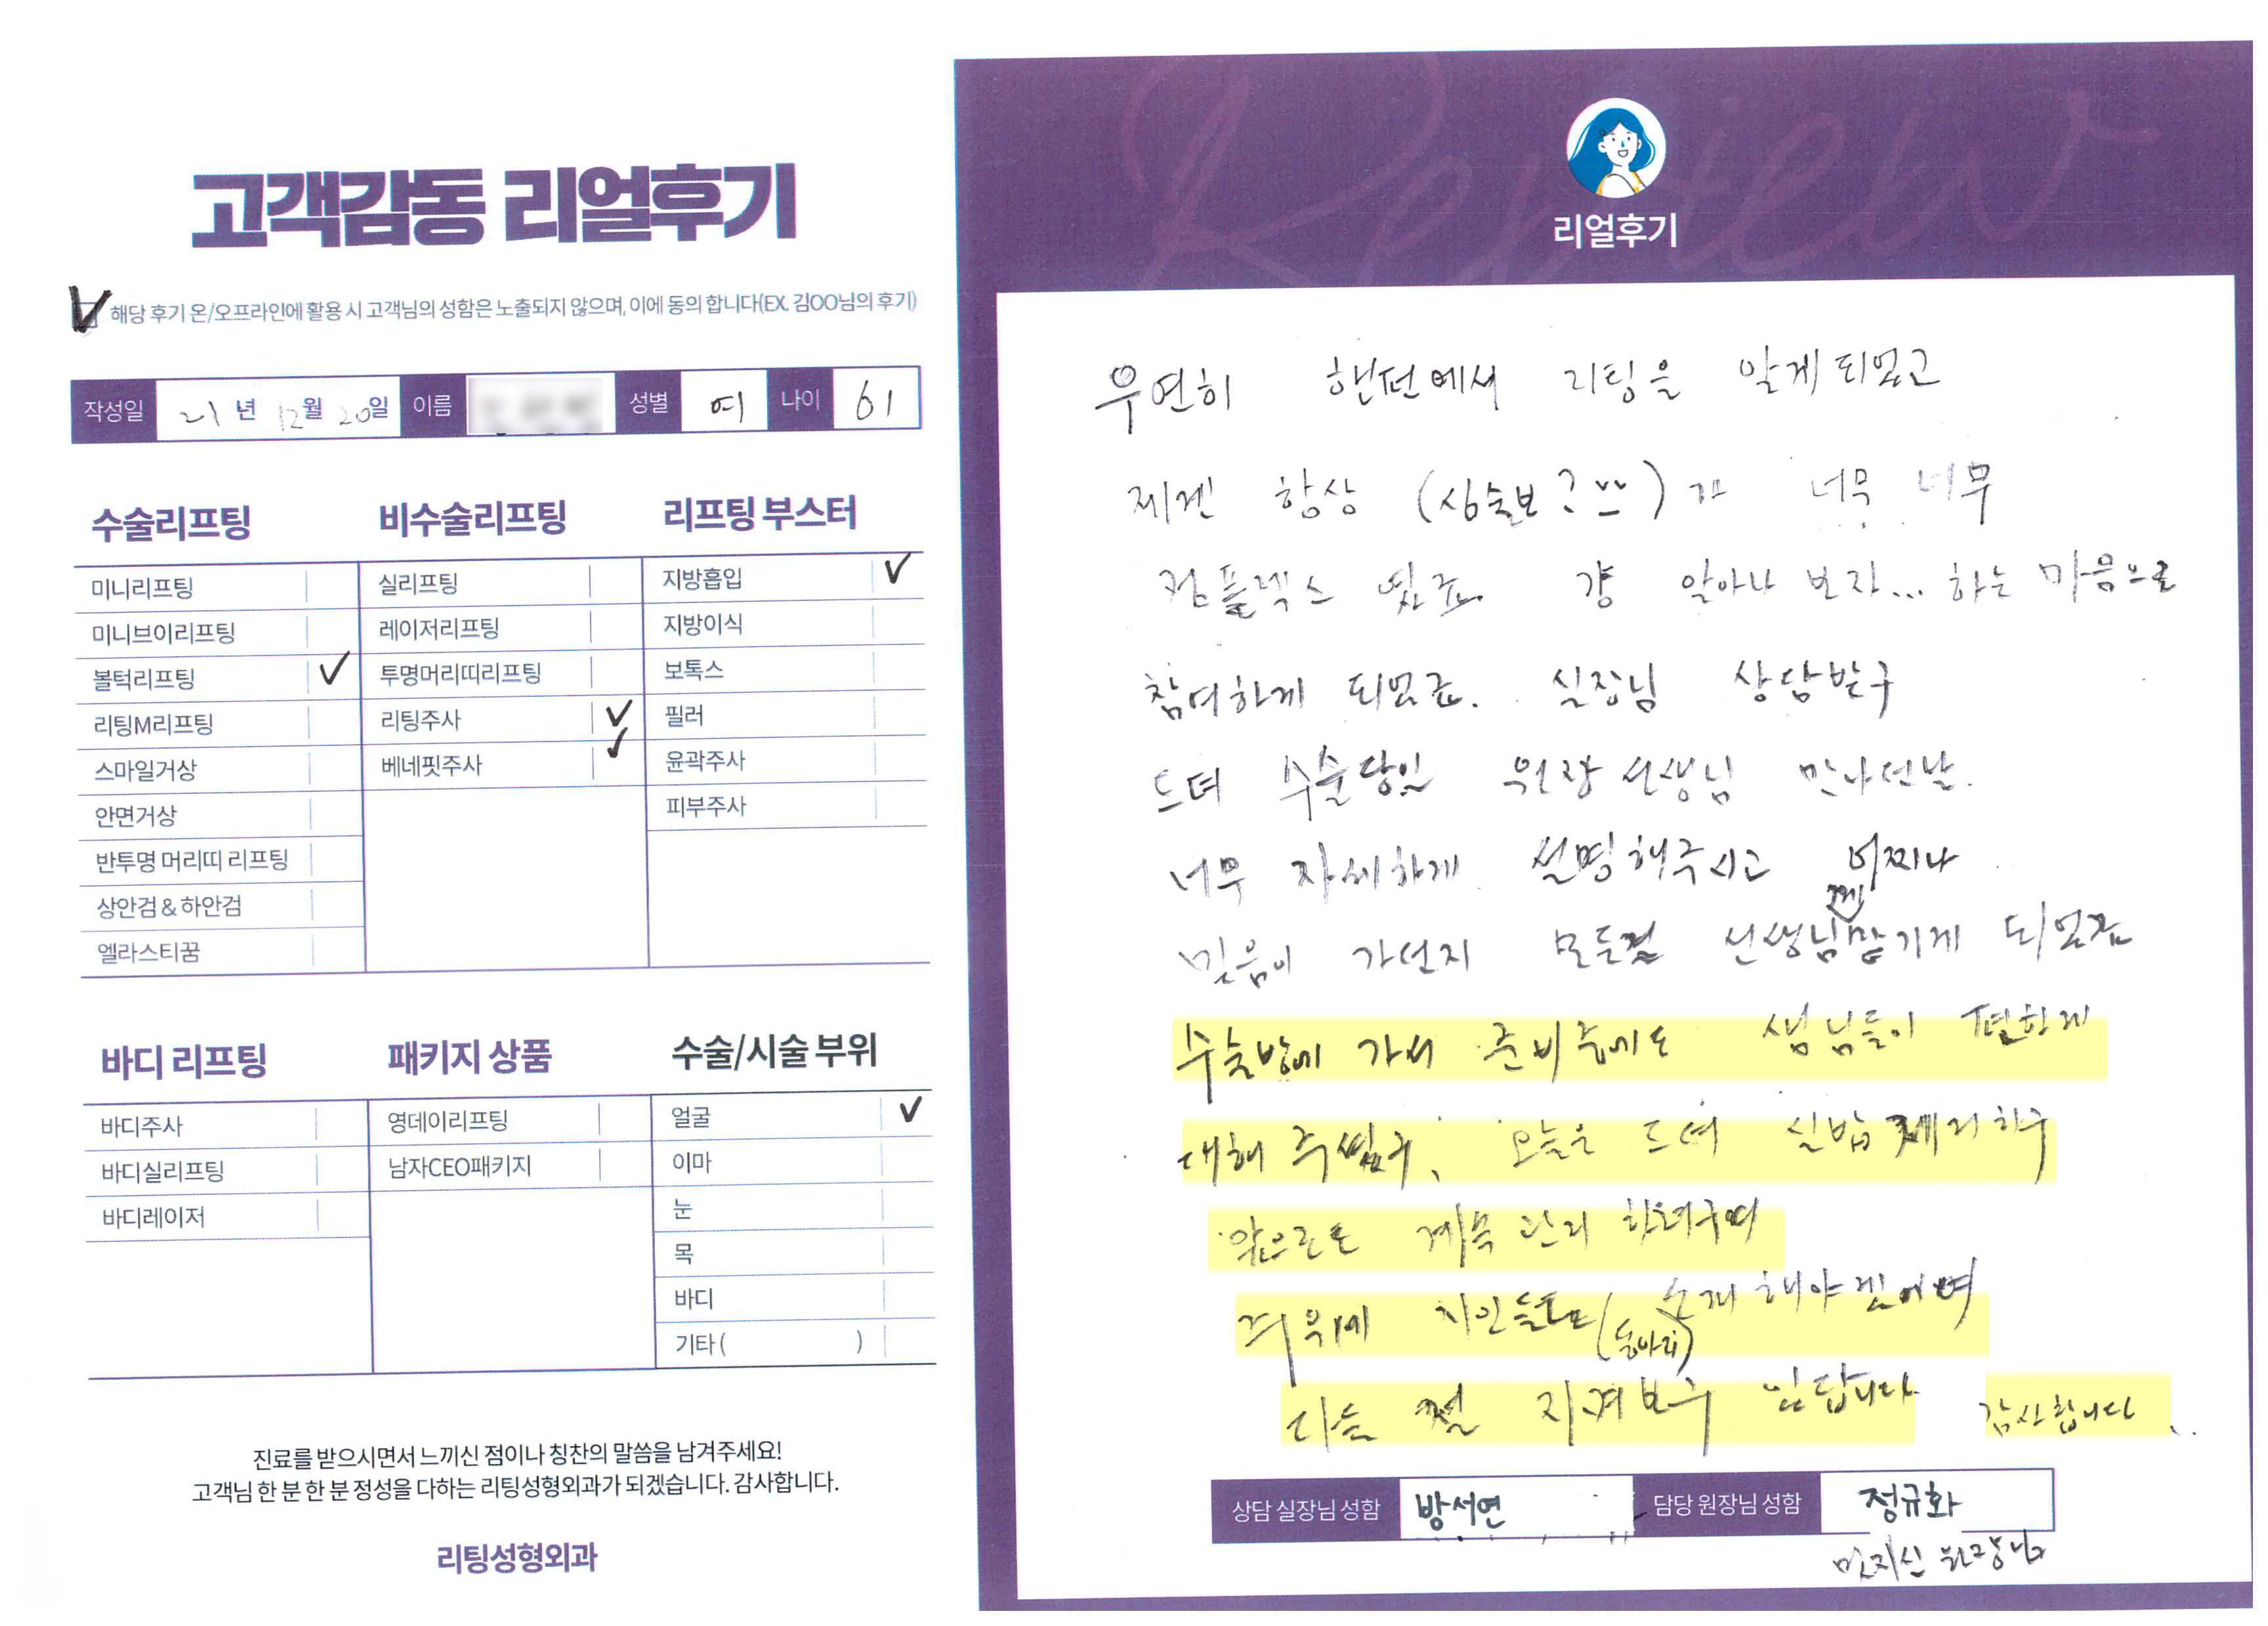 고객감동 리얼후기
해당 후기 온/오프라인에 활용 시 고객님의 성함은 노출되지 않으며, 이에 동의 합니다(EX. 김OO님의 후기)
작성일 21년 12월 20일 이름 성별 여 나이 61
수술리프팅
미니리프팅
미니브이리프팅
볼턱리프팅
리팅M리프팅
스마일거상
안면거상
반투명 머리띠 리프팅
상안검 & 하안검
엘라스티꿈
비수술리프팅
실리프팅
레이저리프팅
투명머리띠리프팅
리팅주사
베네핏주사
리프팅 부스터
지방흡입
지방이식
보톡스
필러
윤곽주사
피부주사
바디 리프팅
바디주사
바디실리프팅
바디레이저
패키지 상품
영데이리프팅
남자CEO패키지
수술/시술 부위
얼굴
이마
눈
목
바디
기타 ( )
진료를 받으시면서 느끼신 점이나 칭찬의 말씀을 남겨주세요!
고객님 한 분 한 분 정성을 다하는 리팅성형외과가 되겠습니다. 감사합니다.
리팅성형외과
Review
리얼후기
우연히 핸펀에서 리팅을 알게되었고
제겐 항상 (심술보?¨)가 너무 너무
컴플렉스 였죠. 걍 알아나 보자... 하는 마음으로
참여하게 되었죠. 실장님 상담받구
드뎌 수술당일 원장선생님 만나선날.
너무 자세하게 설명해주시고 어찌나
믿음이 가선지 모든걸 선생님께 맡기게 되었죠
수술방에 가서 준비중에도 샘님들이 편하게
대해 주셨구, 오늘은 드뎌 실밥제거하구
앞으로도 계속 관리 하려구여
주위에 지인들도(동아리) 소개해야겠어여
다들 절 지켜보구 있답니다 감사합니다..
상담 실장님 성함 방서연 담당 원장님 성함 정규화
멋지신 원장님